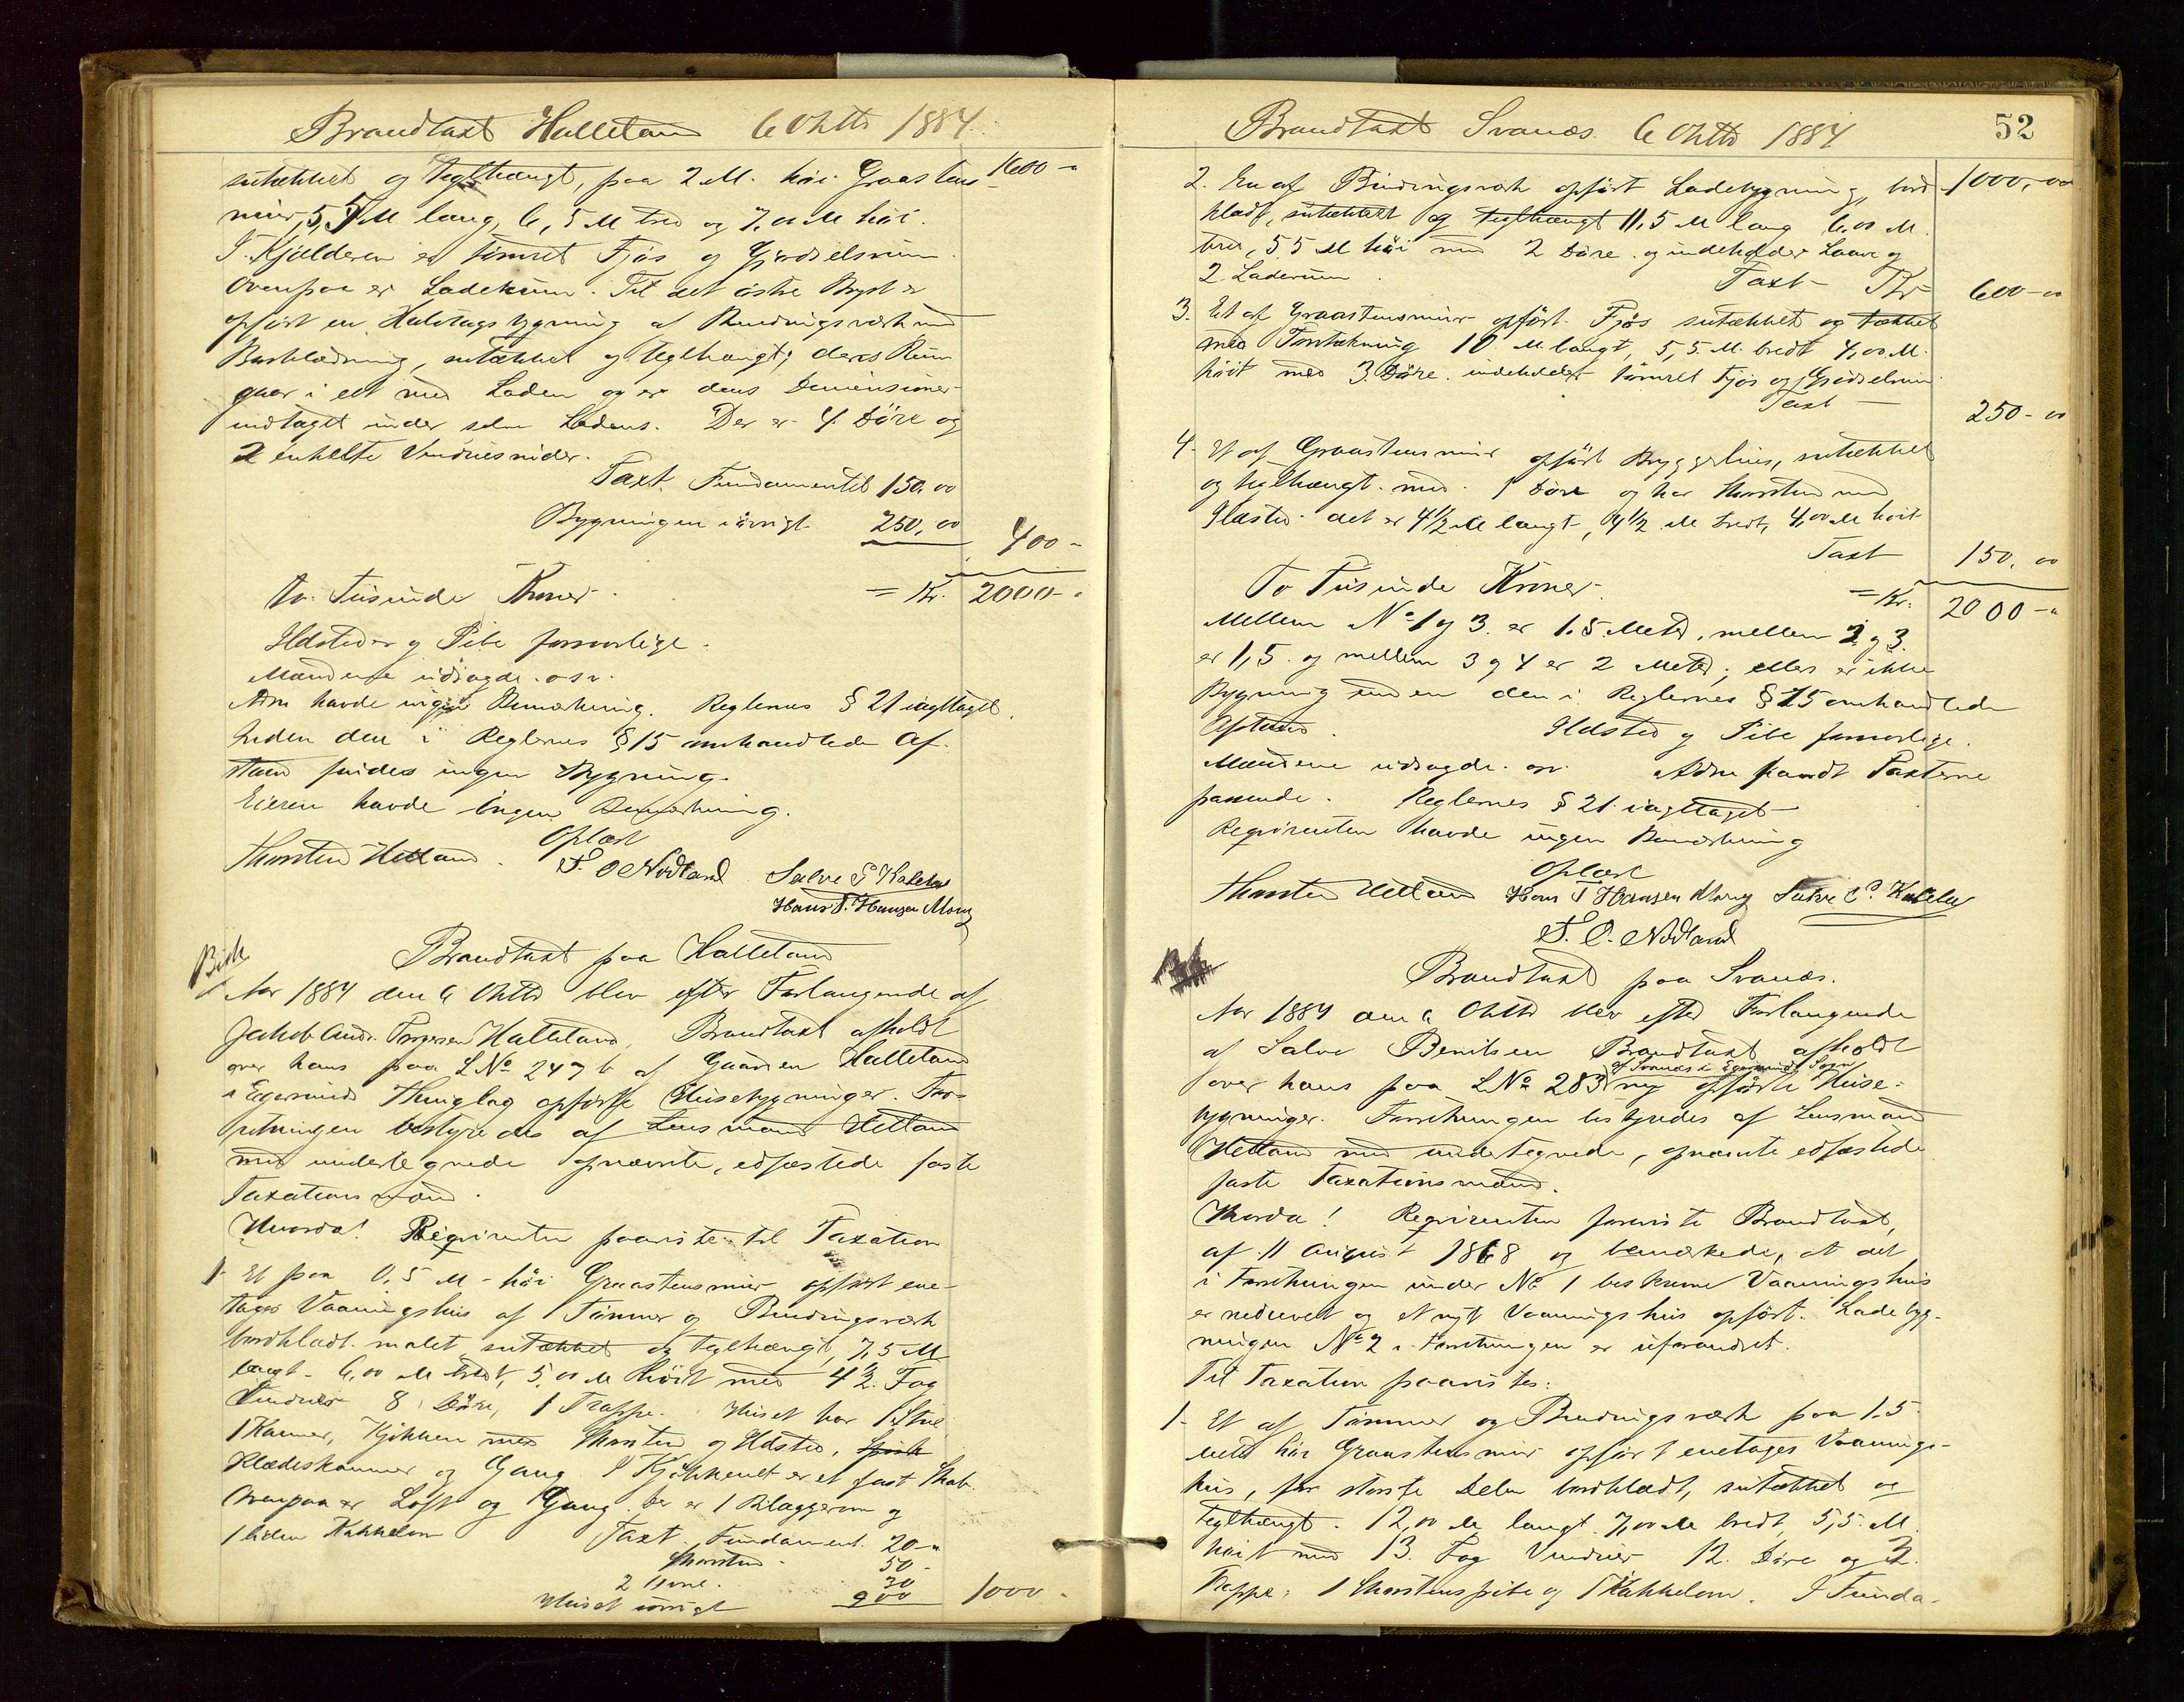 Brandtaxt Halleland 6 Oktb 1884
sutækket og teglhængt, paa 2 M. høi Graastens- 1600 -
mur, 5,5 M lang, 6,5 M bred og 7,00 M høi.
I Kjælderen er tømret Fjøs og Gjødselsrum.
Ovenpaa er Laderum. Til det østre Bryst er
opført en Halvtagsbygning af Bindingsværk med
Bordklædning, sutækket og teglhængt; deres Rum
gaar i eet med Laden og er dens Dimensioner
indtaget under selve Ladens. Der er 4 Døre og
2 enkelte Vinduesruder.
Taxt. Fundamentet 150,00
Bygningen iøvrigt 250,00 400 -
to Tusinde Kroner = Kr. 2000 -
Ildsteder og Pibe forsvarlige.
Mændene udsagde osv.
Adm havde ingen Bemærkning. Reglernes § 21 iagttaget.
Inden den i Reglernes § 15 omhandlede Af-
stand findes ingen Bygning.
Eieren havde ingen Bemærkning.
Oplæst
Thorsten Hetland. S. O Nodland Salve P Kalleberg
Hans T. Hansen Mong
Birk
Brandtaxt paa Halleland
Aar 1884 den 6 Oktb blev efter Forlangende af
Jakob Andr. Torgersen Halleland, Brandtaxt afholdt
over hans paa LNo 247 b af Gaarden Halleland
i Egersunds Thinglag opførte Huusebygninger. For-
retningen bestyredes af Lensmand Hetland
med undertegnede opnævnte, edfæstede faste
Taxationsmænd.
Hvorda! Reqvirenten paaviste til Taxation
1. Et paa 0,5 M høi Graastensmur opført een-
tages Vaaningshus af Tømmer og Bindingsværk
bordklædt malet sutækket og teglhængt, 7,5 M
langt 6,00 M bredt, 5,00 M høit med 4½ Fag
Vinduer 8 Døre, 1 Trappe. Huset har 1 Stue
1 Kamer, Kjøkken med Skorsten og Ildsted,
Klædeskammer og Gang. I Kjøkkenet er et fast Skab.
Ovenpaa er Loft og Gang. Der er 1 Bilæggerovn og
1 liden Kakkelovn Taxt. Fundament 20 -
Skorsten - 50 -
2 Ovne. 30
Huset iøvrigt 900 1000 -
Brandtaxt Svanæs 6 Oktb 1884 52
2. En af Bindingsværk opført Ladebygning, bord- 1000,00
klædt, sutækket og teglhængt 11,5 M lang 6,00 M.
bred, 5,5 M høi med 2 Døre og indeholder Laave og
2 Laderum. Taxt - Kr 600 - 00
3. Et af Graastensmur opført Fjøs sutækket og tækket
med Torvtækning 10 M langt, 5,5 M. bredt 4,00 M.
høit med 3 Døre. indeholder tømret Fjøs og Gjødselrum.
Taxt - 250 - 00
4. Et af Graastensmur opført Bryggehus, sutækket
og teglhængt med 1 Døre og har Skorsten med
Ildsted. det er 4½ M langt, 4½ M bredt, 4,00 M høit
Taxt 150,00
To Tusinde Kroner. = Kr. 2000 -
Mellem No 1 og 3 er 1,5 Meter, mellem 2 og 3
er 1,5 og mellem 3 og 4 er 2 Meter; ellers er ikke
Bygning inden den i Reglernes § 15 omhandlede
Afstand. Ildsted og Pibe forsvarlige.
Mændene udsagde osv. Adm fandt Taxterne
passende. Reglernes § 21 iagttaget
Reqvirenten havde ingen Bemærkning
Oplæst
Thorsten Hetland Hans T Hansen Mong Salve P. Kalleberg
S. O. Nodland
Brandtaxt paa Svanæs.
Aar 1884 den 6 Oktb blev efter Forlangende
af Salve Bentsen Brandtaxt afholdt
af Svanæs i Egersunds Sogn
over hans paa LNo 283 ny opførte Huse-
bygninger. Forretningen bestyredes af Lensmand
Hetland med undertegnede, opnævnte edfæstede
faste Taxationsmænd.
Hvorda! Reqvirenten foreviste Brandtaxt,
af 11 August 1868 og bemærkede, at det
i Forretningen under No 1 beskrevne Vaaningshus
er nedrevet og et nyt Vaaningshus opført. Ladebyg-
ningen No 2 i Forretningen er uforandret.
Til Taxation paavistes:
1. Et af Tømmer og Bindingsværk paa 1,5
meter høi Graastensmur opført eenetages Vaanings-
hus, for største Delen bordklædt, sutækket og
teglhængt. 12,00 M langt 7,00 M bredt 5,5 M.
høit med 13 Fag Vinduer 12 Døre og 2
Trapper 1 Skorstenspibe og 1 Kakkelovn. I Funda-